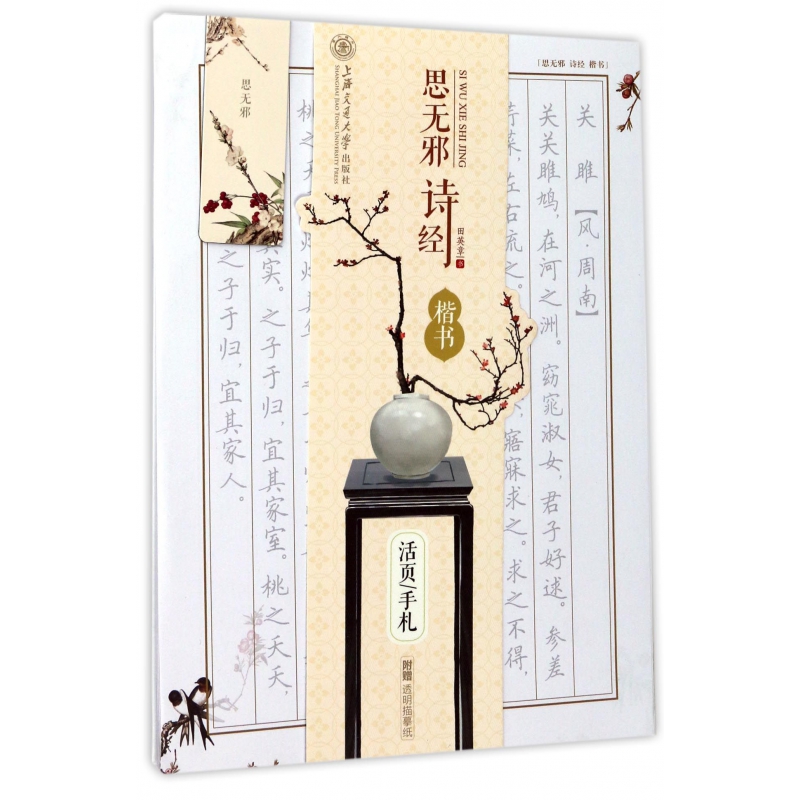 [思无邪 诗经 楷书]
关雎【风·周南】
关关雎鸠，在河之洲。窈窕淑女，君子好逑。参差
荇菜，左右流之。
寤寐求之。求之不得，
思无邪 诗经
SI WU XIE SHI JING
田英章 书
楷书
上海交通大学出版社
SHANGHAI JIAO TONG UNIVERSITY PRESS
活页/手札
附赠 透明描摹纸
思无邪
桃之
其实。之子于归，宜其家室。桃之夭夭，
之子于归，宜其家人。